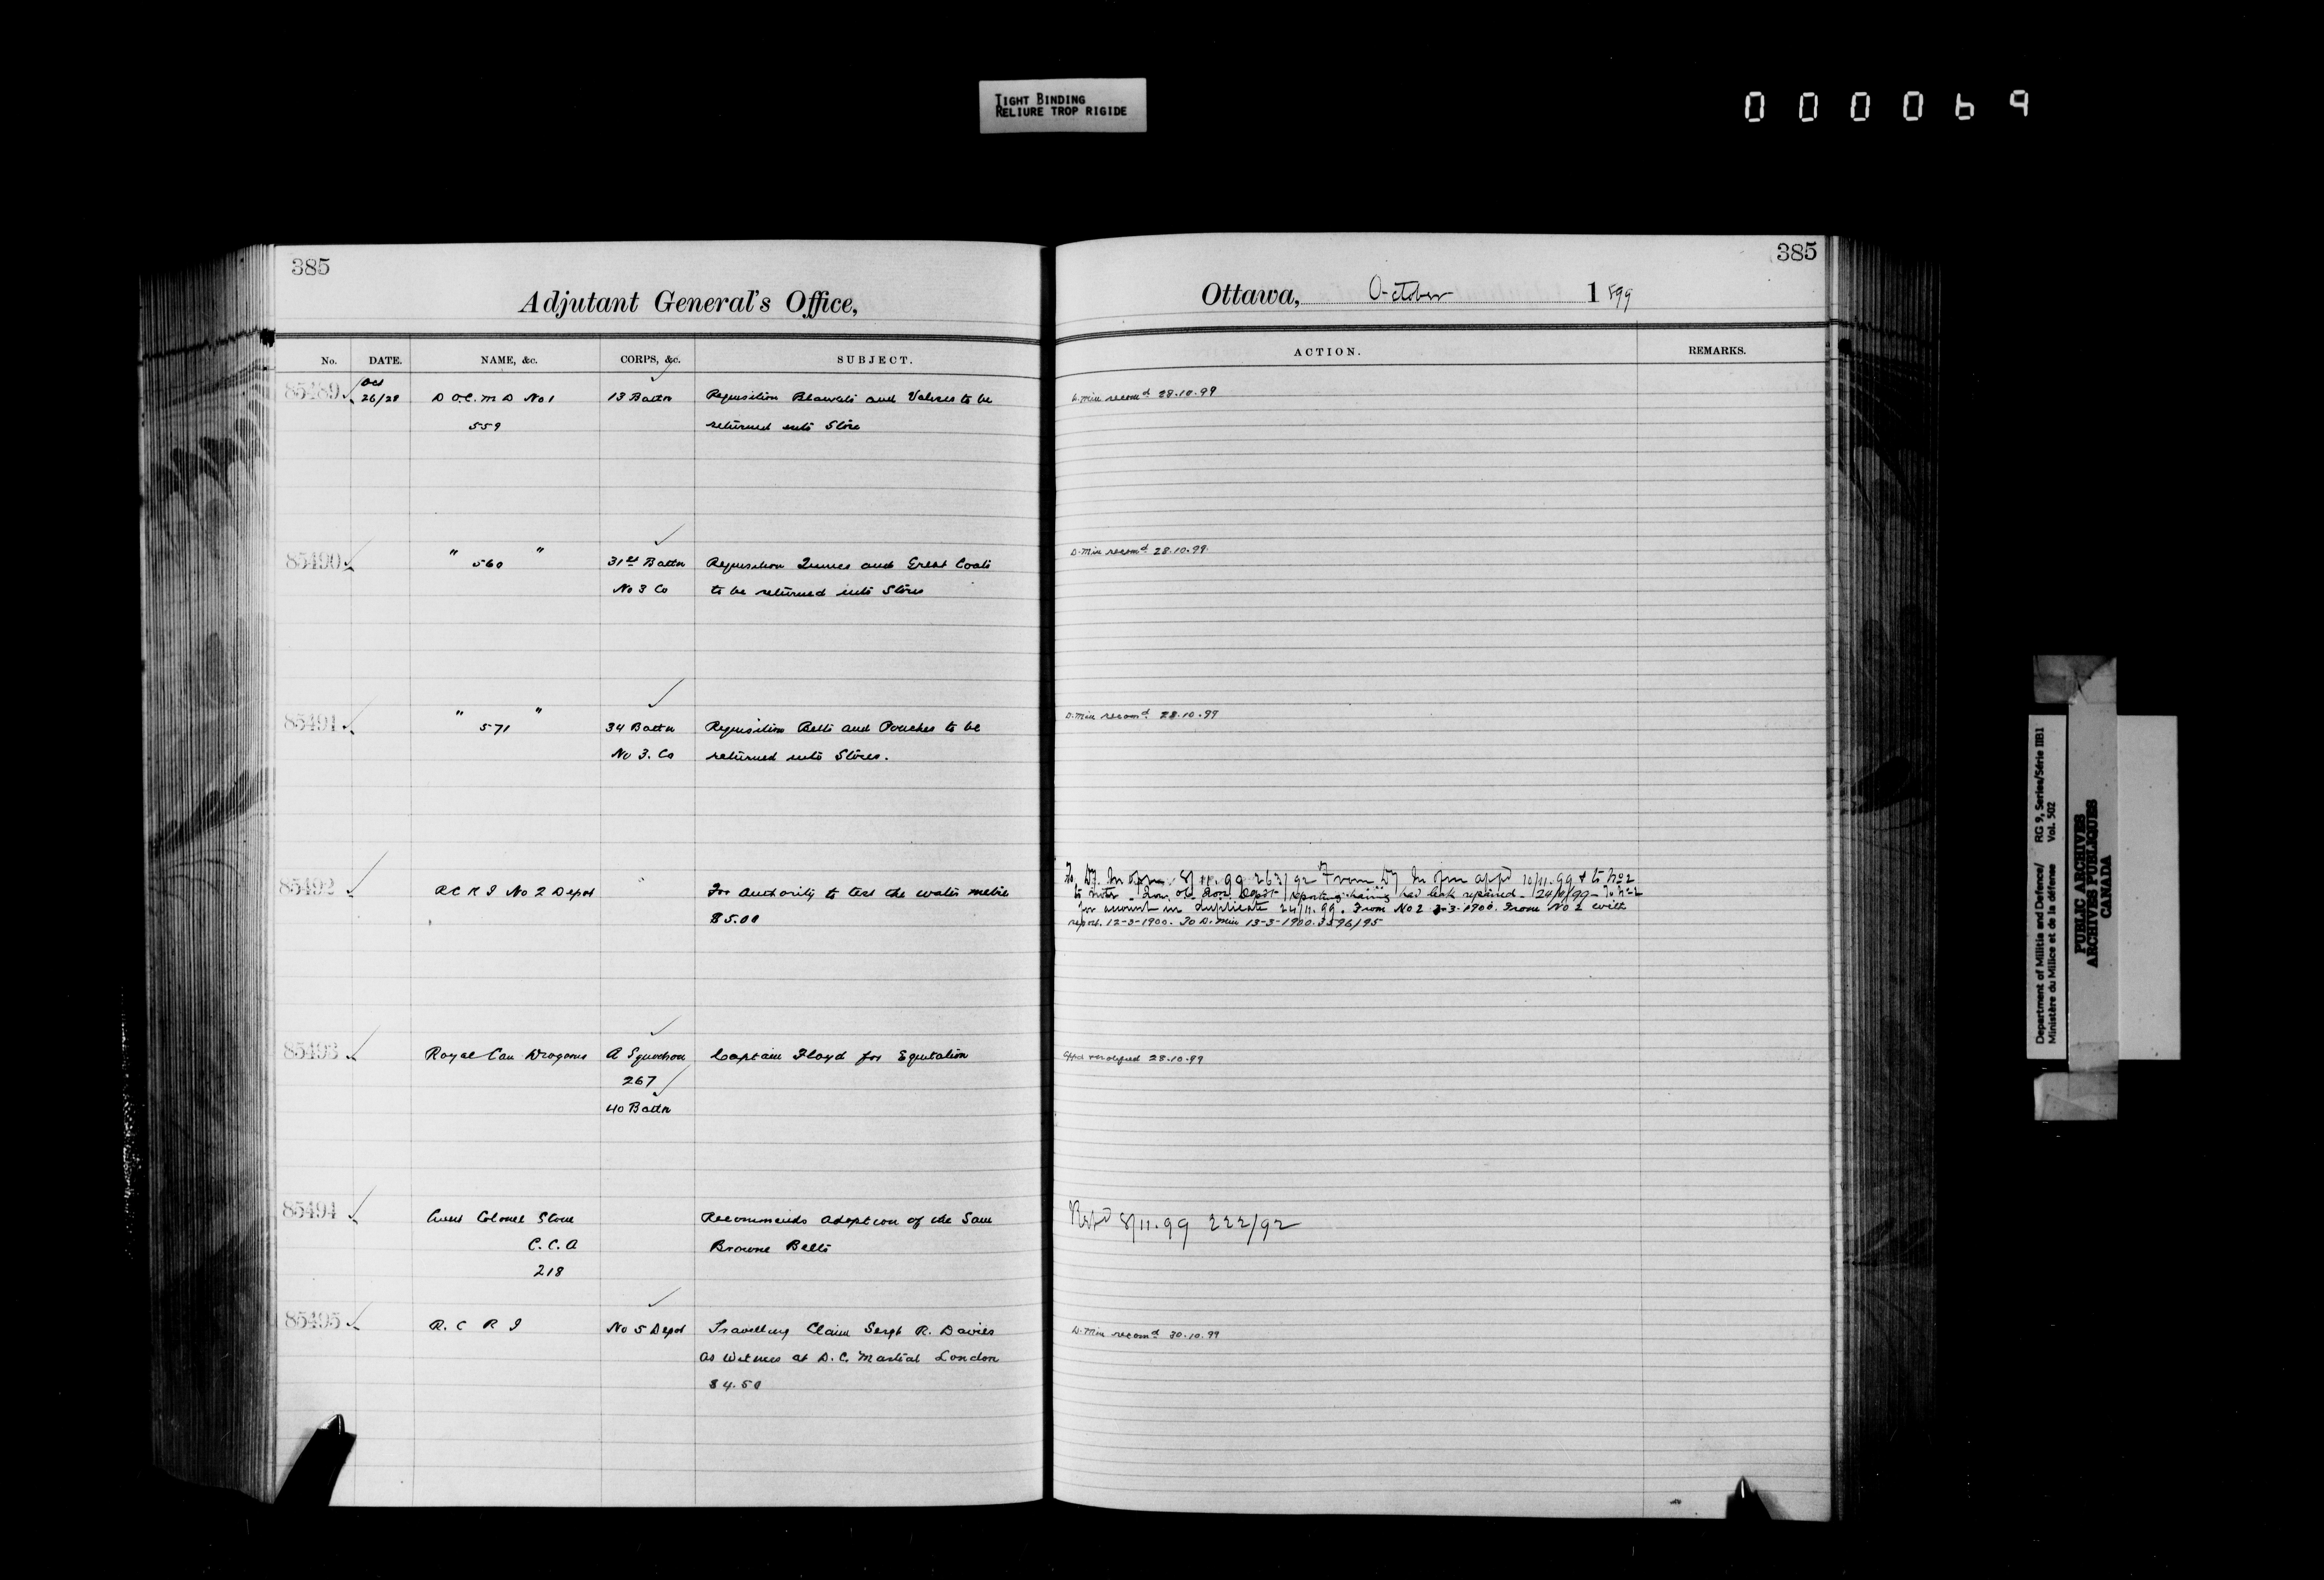 TIGHT BINDING
RELIURE TROP RIGIDE
000069
385
Adjutant General's Office,
No. DATE. NAME, &c. CORPS, &c. SUBJECT.
85489 Oct 26/28 D.O.C. M D No 1 13 Battn Requisition and Valises to be
559 returned into Store
85490 " 560 " 31st Battn Requisition Tunics and Great Coats
No 3 Co to be returned into Stores
85491 " 571 " 34 Battn Requisition Belts and Pouches to be
No 3. Co returned into Stores.
85492 R C R I No 2 Depot " For authority to test the water metre
$5.00
85493 Royal Can Dragoons A Squadron Captain Floyd for Equitation
267
40 Battn
85494 Lieut Colonel Stone Recommends adoption of the Sam
C.C.A Browne Belts
218
85495 R. C R I No 5 Depot Travelling Claim Sergt R. Davies
as Witness at D.C. Martial London
$4.50
385
Ottawa, October 1899
ACTION. REMARKS.
D. Min recomd 28.10.99
D. Min recomd 28.10.99
D. Min recomd 28.10.99
To Dy. Min 8/11.99 263/92 From Dy Min appd 10/11.99 & to No 2
to note - From Depot reporting having had leak repaired - 24/11/99 - To No 2
for amount in duplicate 24/11.99. From No 2 3-3-1900. From No 2 with
report. 12-3-1900. To D. Min 13-3-1900. 3596/95
28.10.99
Repd 8/11.99 222/92
D. Min recomd 30.10.99
Department of Militia and Defence/ RG 9, Series/Série IIB1
Ministère du Milice et de la défense Vol. 502
PUBLIC ARCHIVES
ARCHIVES PUBLIQUES
CANADA